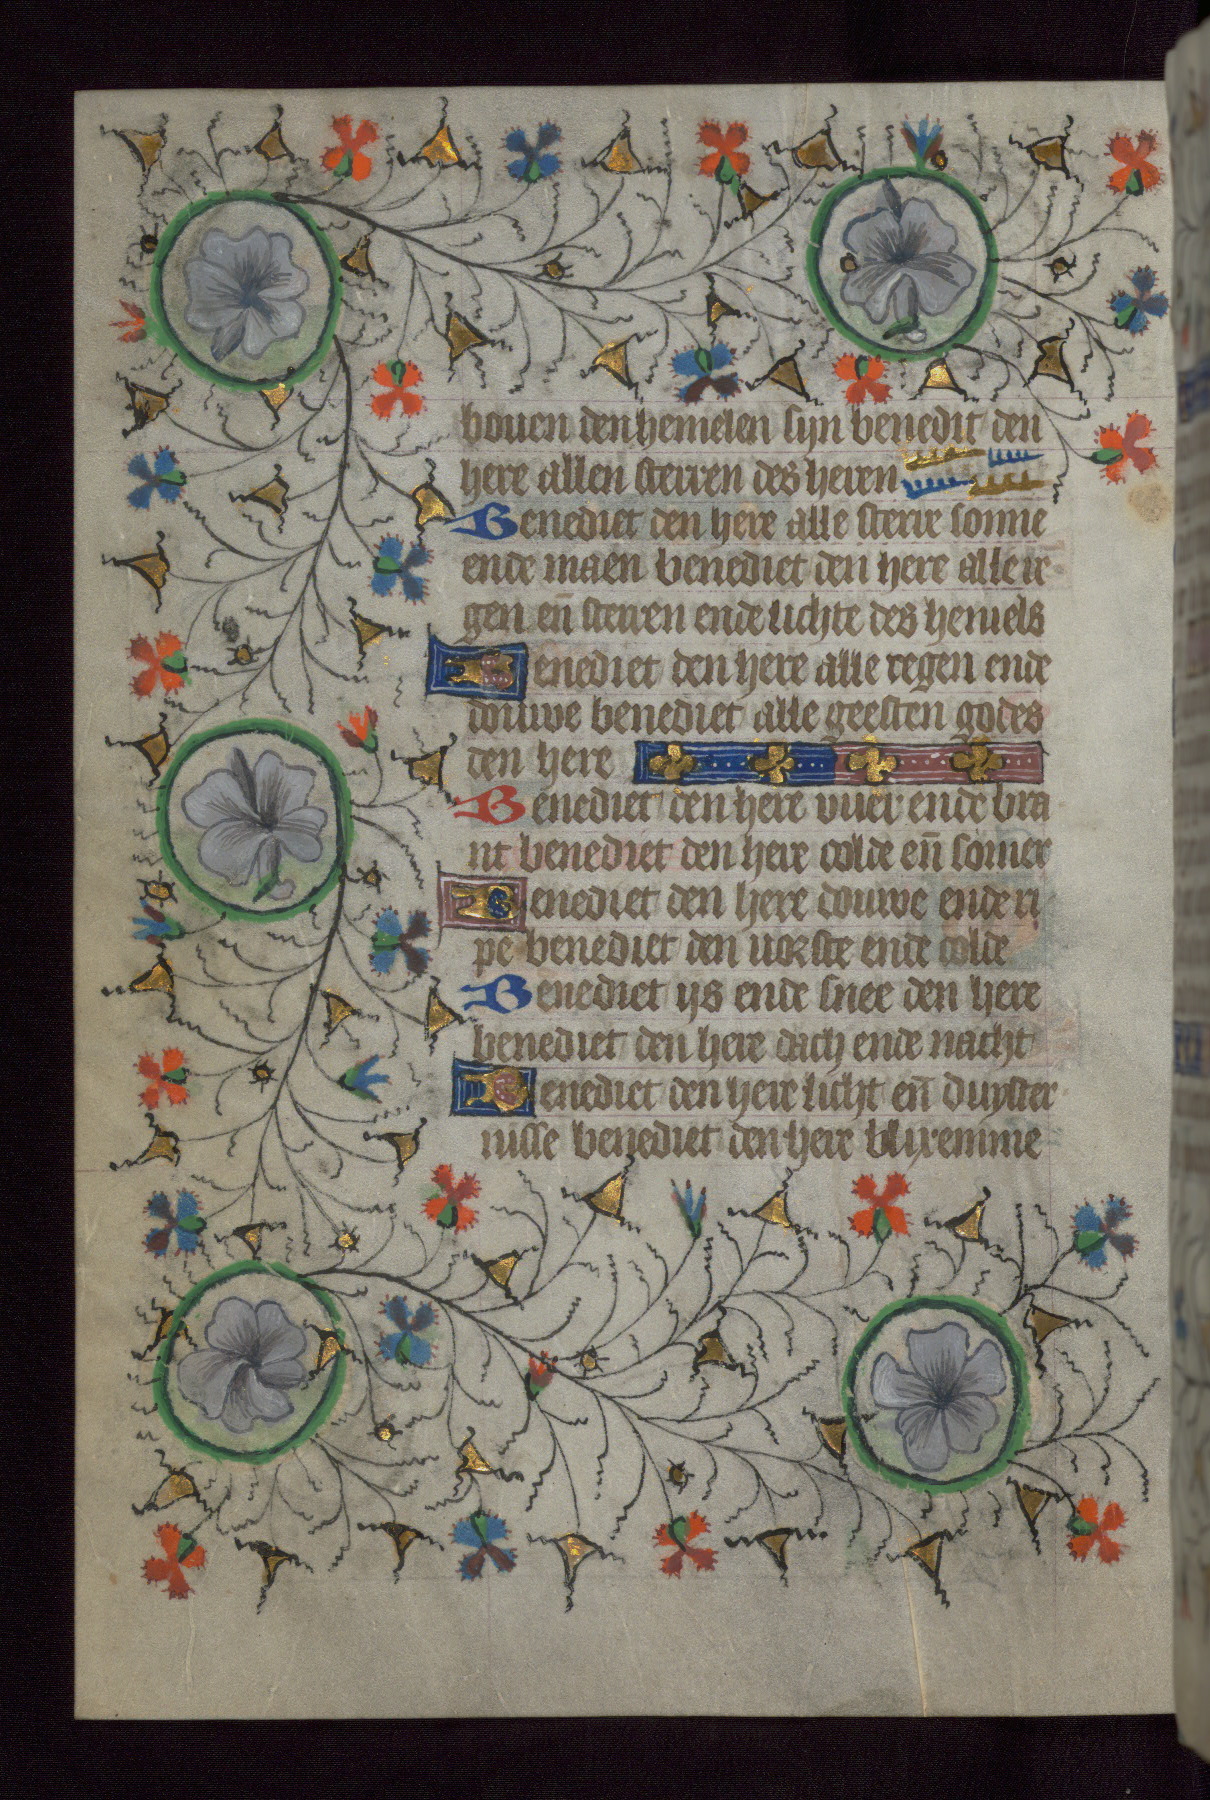 bouen den hemelen sijn benedit den
here allen sterren des heren
Benediet den here alle sterre sonne
ende maen benediet den here alle re
gen en̄ sterren ende lichte des hemels
Benediet den here alle regen ende
douwe benediet alle geesten godes
den here
Benediet den here vuer ende bra
nt benediet den here colde en̄ somer
Benediet den here douwe ende ri
pe benediet den vorste ende colde
Benediet ijs ende snee den here
benediet den here dach ende nacht
Benediet den here licht en̄ duyster
nisse benediet den here blixemme